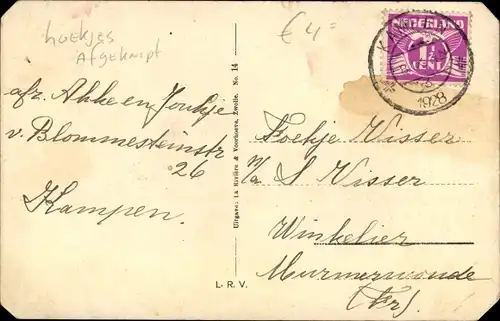 hoekjes
Afgeknipt
€ 4=
NEDERLAND
1½
CENT
KAMPEN
1928
afz. Akke en Jonkje
v. Blommesteinstr
26
Kampen.
Uitgave: La Rivière & Voorhoeve, Zwolle. No. 14
L. R. V.
Foekje Visser
p/a S Visser
Winkelier
Murmerwoude
(Fr).